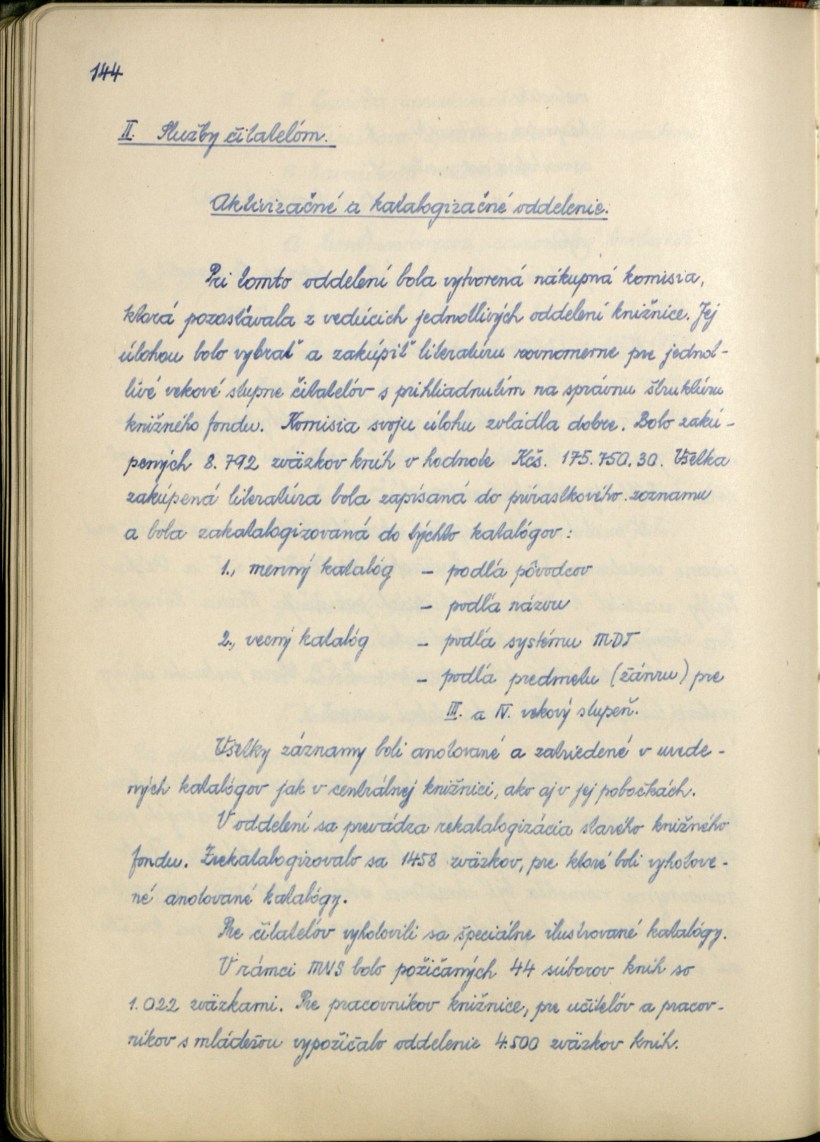 144
II. Služby čitateľom.
Aktivizačné a katalogizačné oddelenie.
Pri tomto oddelení bola vytvorená nákupná komisia,
ktorá pozostávala z vedúcich jednotlivých oddelení knižnice. Jej
úlohou bolo vybrať a zakúpiť literatúru rovnomerne pre jednot-
livé vekové stupne čitateľov s prihliadnutím na správnu štruktúru
knižného fondu. Komisia svoju úlohu zvládla dobre. Bolo zakú-
pených 8.792 zväzkov kníh v hodnote Kčs. 175.750.30. Všetka
zakúpená literatúra bola zapísaná do prírastkového zoznamu
a bola zakatalogizovaná do týchto katalógov:
1., menný katalóg – podľa pôvodcov
– podľa názvu
2., vecný katalóg – podľa systému MDT
– podľa predmetu (žánru) pre
III. a IV. vekový stupeň.
Všetky záznamy boli anotované a zatriedené v uvede-
ných katalógov jak v centrálnej knižnici, ako aj v jej pobočkách.
V oddelení sa prevádza rekatalogizácia starého knižného
fondu. Zrekatalogizovalo sa 1458 zväzkov, pre ktoré boli vyhotove-
né anotované katalógy.
Pre čitateľov vyhotovili sa špeciálne ilustrované katalógy.
V rámci MVS bolo požičaných 44 súborov kníh so
1.022 zväzkami. Pre pracovníkov knižnice, pre učiteľov a pracov-
níkov s mládežou vypožičalo oddelenie 4.500 zväzkov kníh.